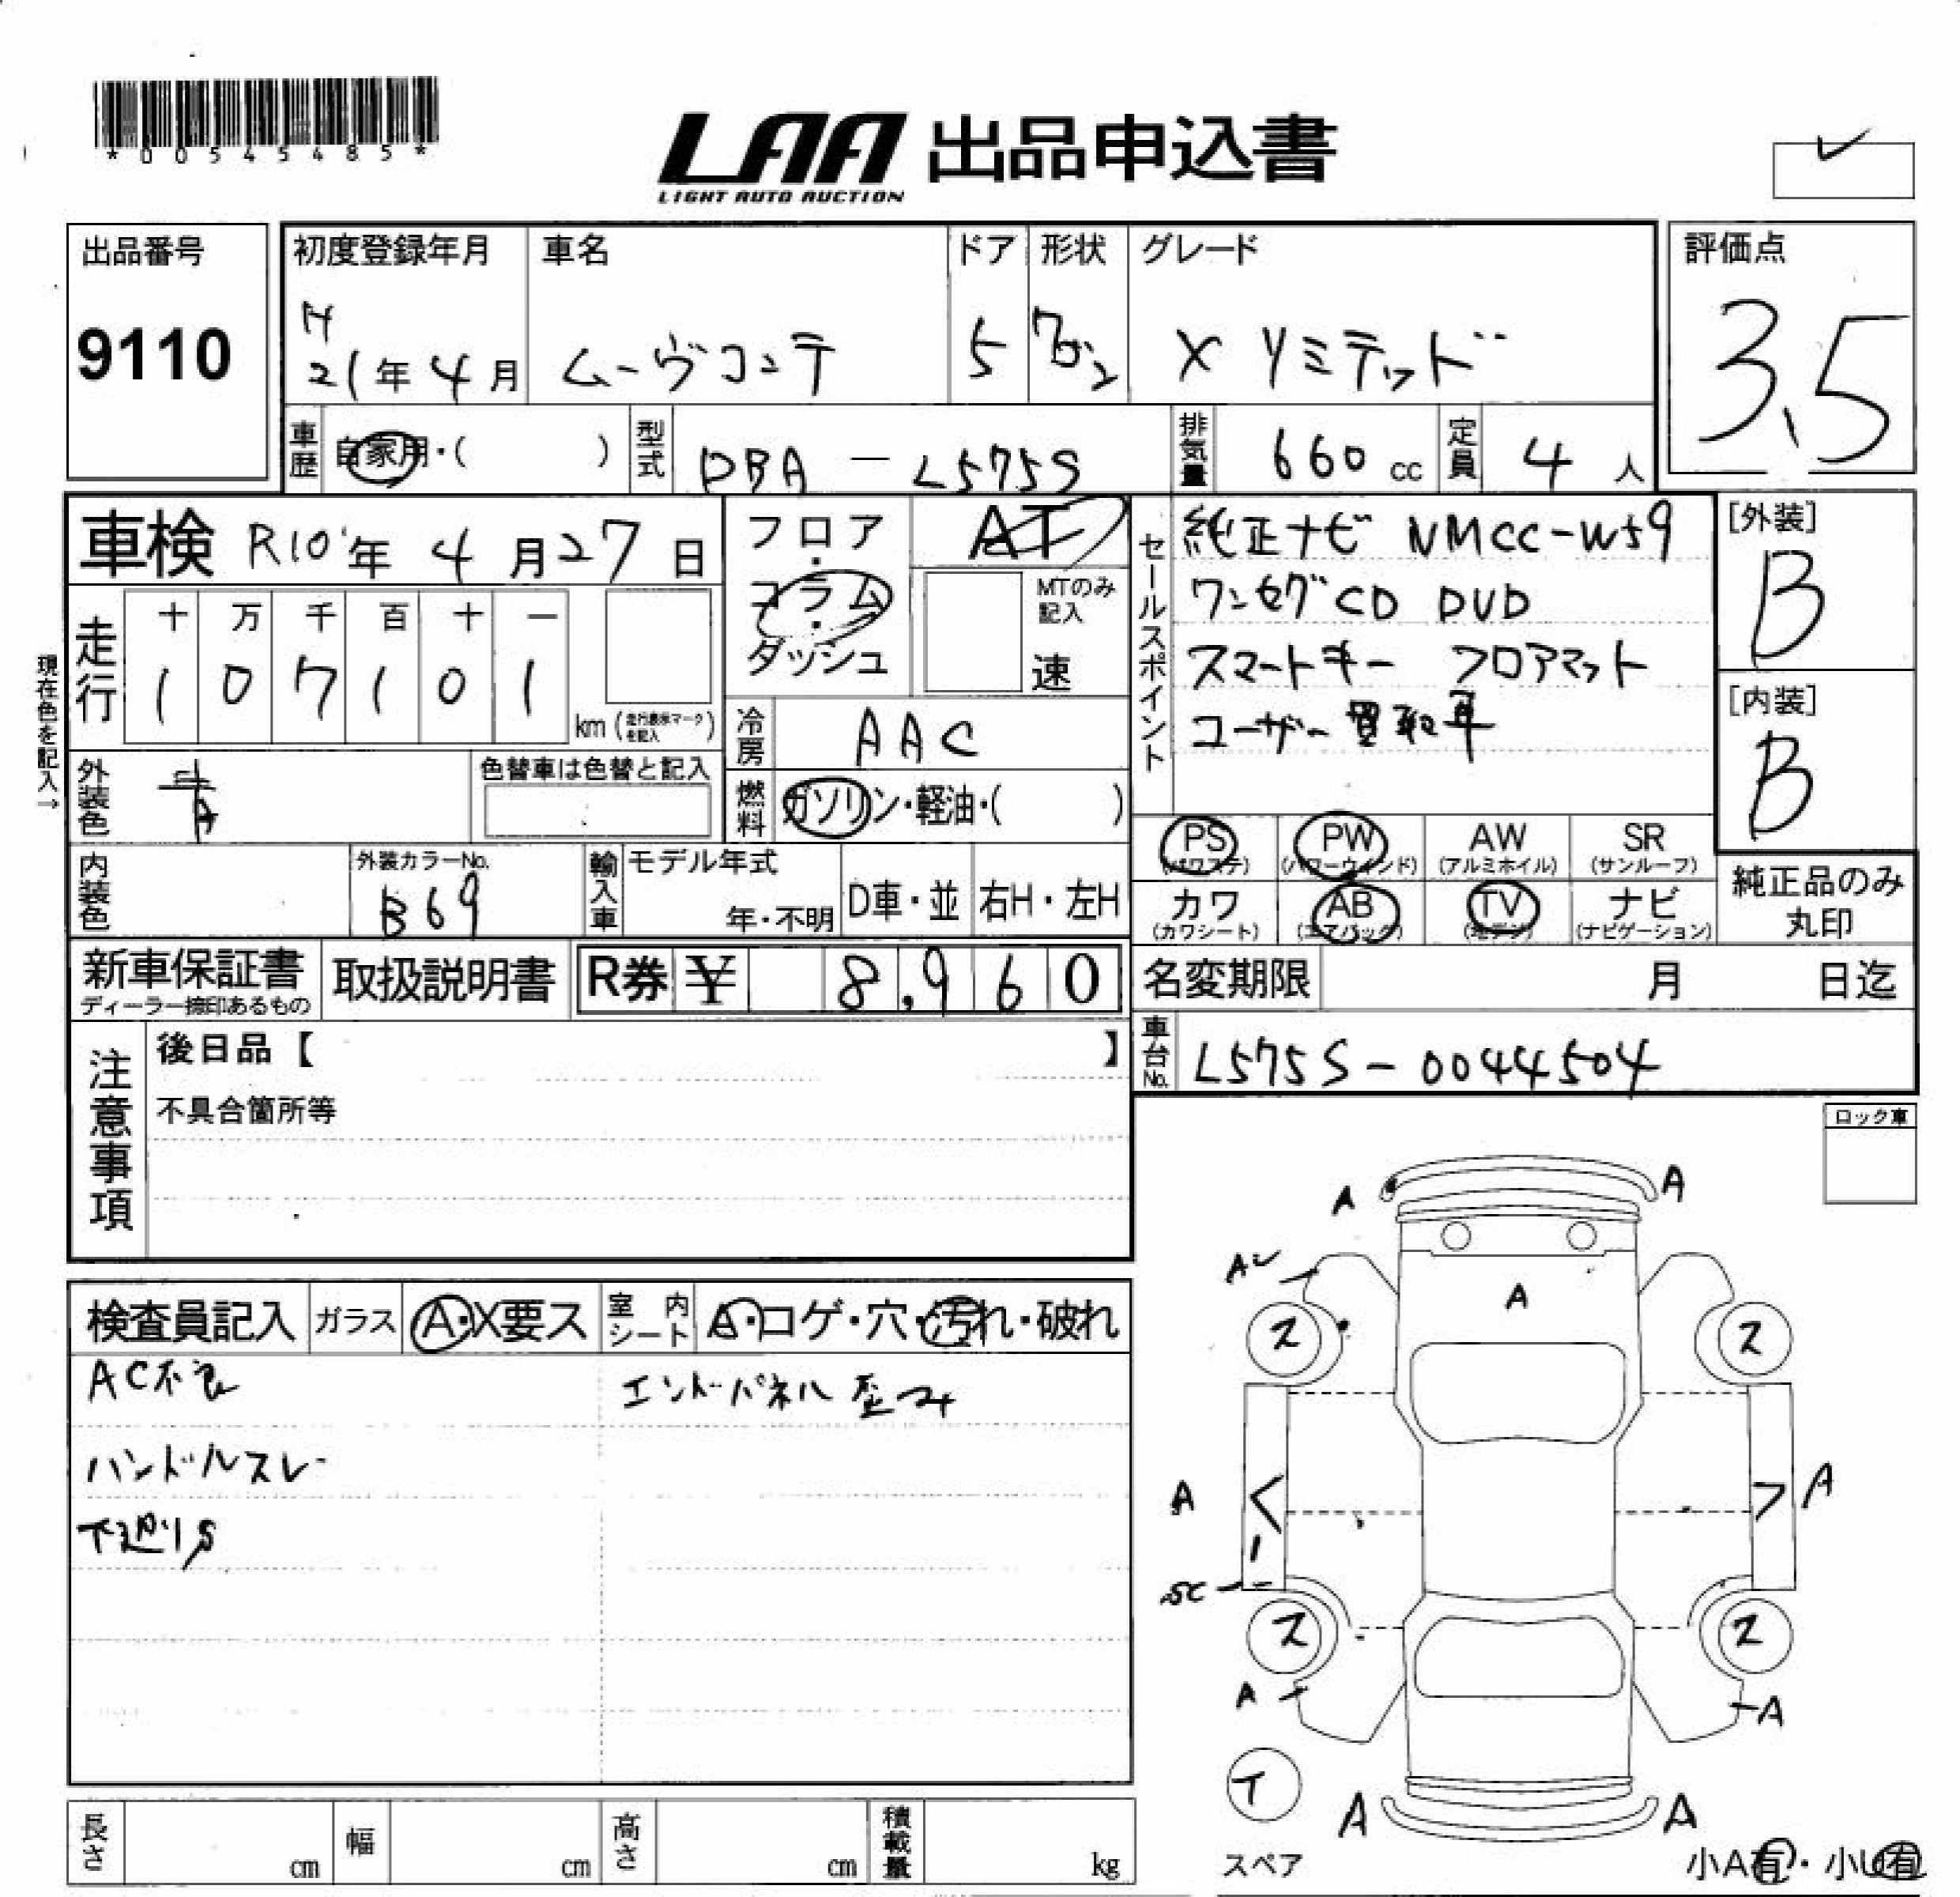 *00545485*
LAA 出品申込書
LIGHT AUTO AUCTION
出品番号
9110
初度登録年月
H
21年 4月
車名
ムーヴコンテ
ドア
5
形状
グレード
X リミテッド
評価点
3.5
車歴
自家用・( )
型式
DBA-L575S
排気量
660 cc
定員
4 人
車検 R10年 4月27日
フロア・コラム・ダッシュ
AT
MTのみ記入
速
現在色を記入→
走行
十 万 千 百 十 一
1 0 7 1 0 1
km (走行表示マークを記入)
冷房
AAC
外装色
青
色替車は色替と記入
燃料
ガソリン・軽油・( )
内装色
外装カラーNo.
B69
輸入車
モデル年式
年・不明
D車・並
右H・左H
セールスポイント
純正ナビ NMCC-W59
ワンセグ CD DVD
スマートキー フロアマット
ユーザー買取車
[外装]
B
[内装]
B
PS (パワステ)
PW (パワーウィンド)
AW (アルミホイル)
SR (サンルーフ)
カワ (カワシート)
AB (エアバック)
TV (地デジ)
ナビ (ナビゲーション)
純正品のみ
丸印
新車保証書
ディーラー捺印あるもの
取扱説明書
R券 ¥ 8,960
名変期限 月 日迄
車台No.
L575S-0044504
注意事項
後日品【 】
不具合箇所等
ロック車
検査員記入
ガラス
A・X要ス
室内シート
A・コゲ・穴・汚れ・破れ
AC不良
エンドパネル歪み
ハンドルスレ
下廻りS
A A
A
ス ス
A A
ス ス
A A
A A
スペア
小A有・小U有
長さ cm
幅 cm
高さ cm
積載量 kg